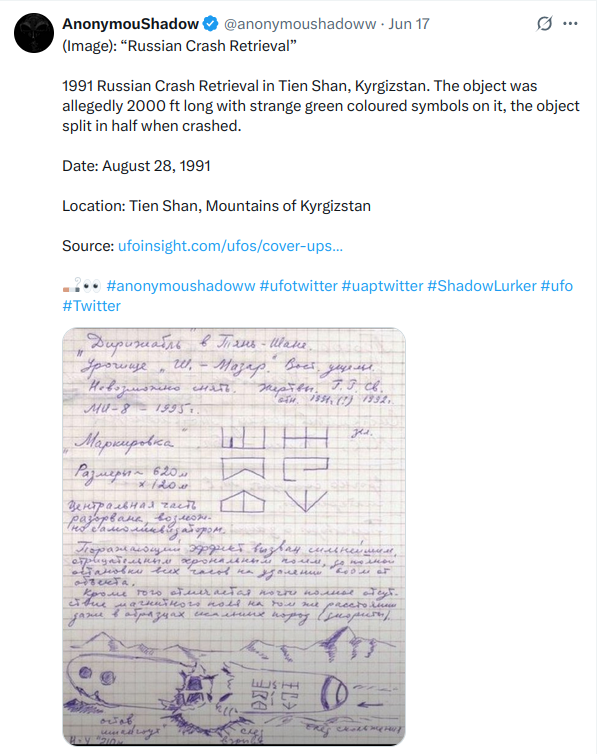 AnonymouShadow @anonymoushadoww · Jun 17
(Image): “Russian Crash Retrieval”
1991 Russian Crash Retrieval in Tien Shan, Kyrgizstan. The object was
allegedly 2000 ft long with strange green coloured symbols on it, the object
split in half when crashed.
Date: August 28, 1991
Location: Tien Shan, Mountains of Kyrgizstan
Source: ufoinsight.com/ufos/cover-ups...
#anonymoushadoww #ufotwitter #uaptwitter #ShadowLurker #ufo
#Twitter
"Дирижабль" в Тянь-Шане.
Урочище "Ш.-Мазар". Вост. ущелье.
Невозможно снять. Жертвы. Г.Г. Св.
1991 (?) 1992г.
МИ-8 - 1995г.
"Маркировка"
зел.
Размеры ~ 620м
х 120м
Центральная часть
разорвана, возмож-
но самоликвизатором.
Поражающий эффект вызван сильнейшим,
отрицательным хрональным полем, до полной
остановки всех часов на удалении от
объекта.
Кроме того отмечается почти полное отсут-
ствие магнитного поля на том же расстоянии
даже в образцах скальных пород
остов
след
взрыва
след скольжения